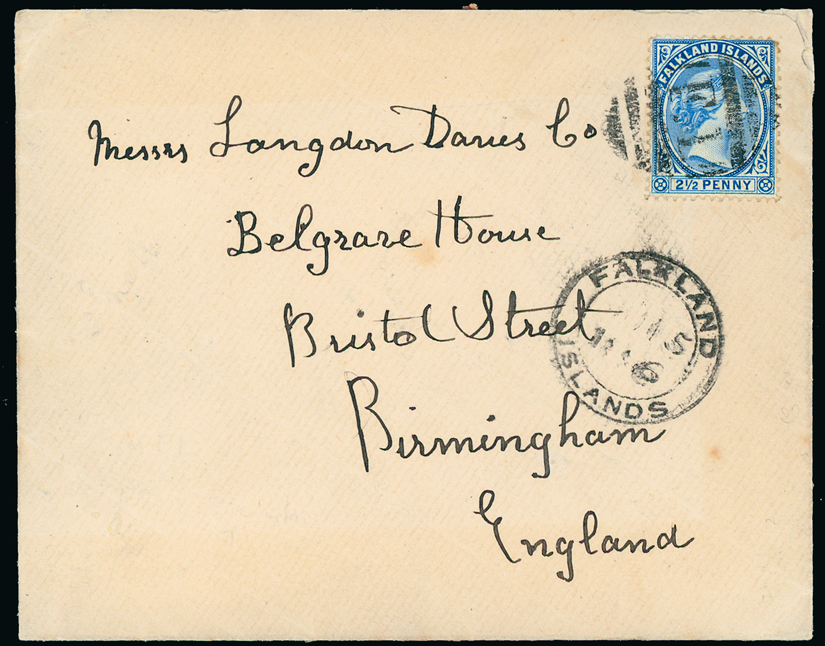 FALKLAND ISLANDS
2½ PENNY
Messrs Langdon Davies Co
Belgrave House
Bristol Street
Birmingham
England
FALKLAND
ISLANDS